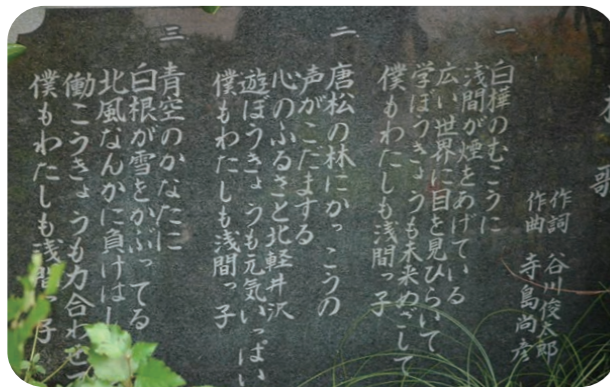 歌
作詞 谷川俊太郎
作曲 寺島尚彦
一
白樺のむこうに
浅間が煙をあげている
広い世界に目を見ひらいて
学ぼうきょうも未来めざして
僕もわたしも浅間っ子
二
唐松の林にかっこうの
声がこだまする
心のふるさと北軽井沢
遊ぼうきょうも元気いっぱい
僕もわたしも浅間っ子
三
青空のかなたに
白根が雪をかぶってる
北風なんかに負けはし
働こうきょうも力合わせ
僕もわたしも浅間っ子